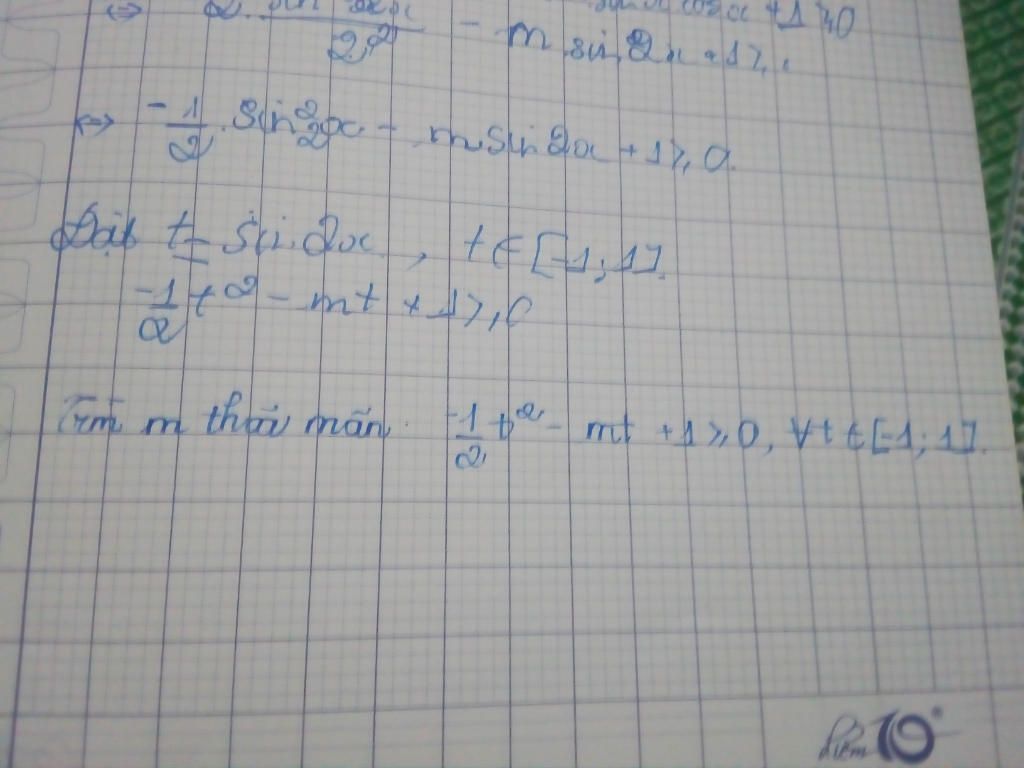 - m sin 2x + 1 ≥
⇔ -1/2 . sin² 2x - m sin 2x + 1 ≥ 0
Đặt t = sin 2x , t ∈ [-1; 1].
-1/2 t² - mt + 1 ≥ 0
Tìm m thoả mãn. -1/2 t² - mt + 1 ≥ 0, ∀t ∈ [-1; 1].
Điểm 10